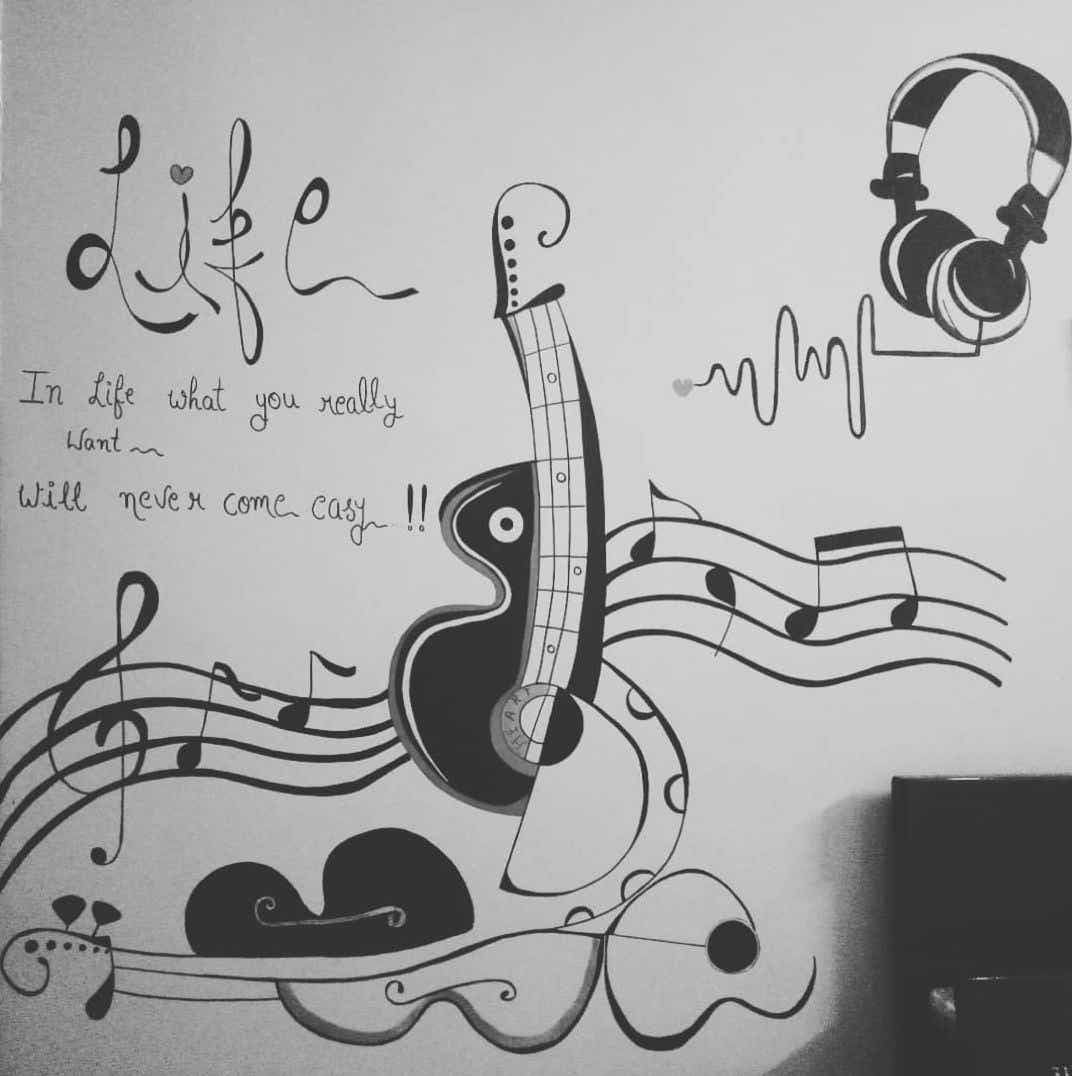 Life
In Life what you really
want
will never come easy !!
HEART